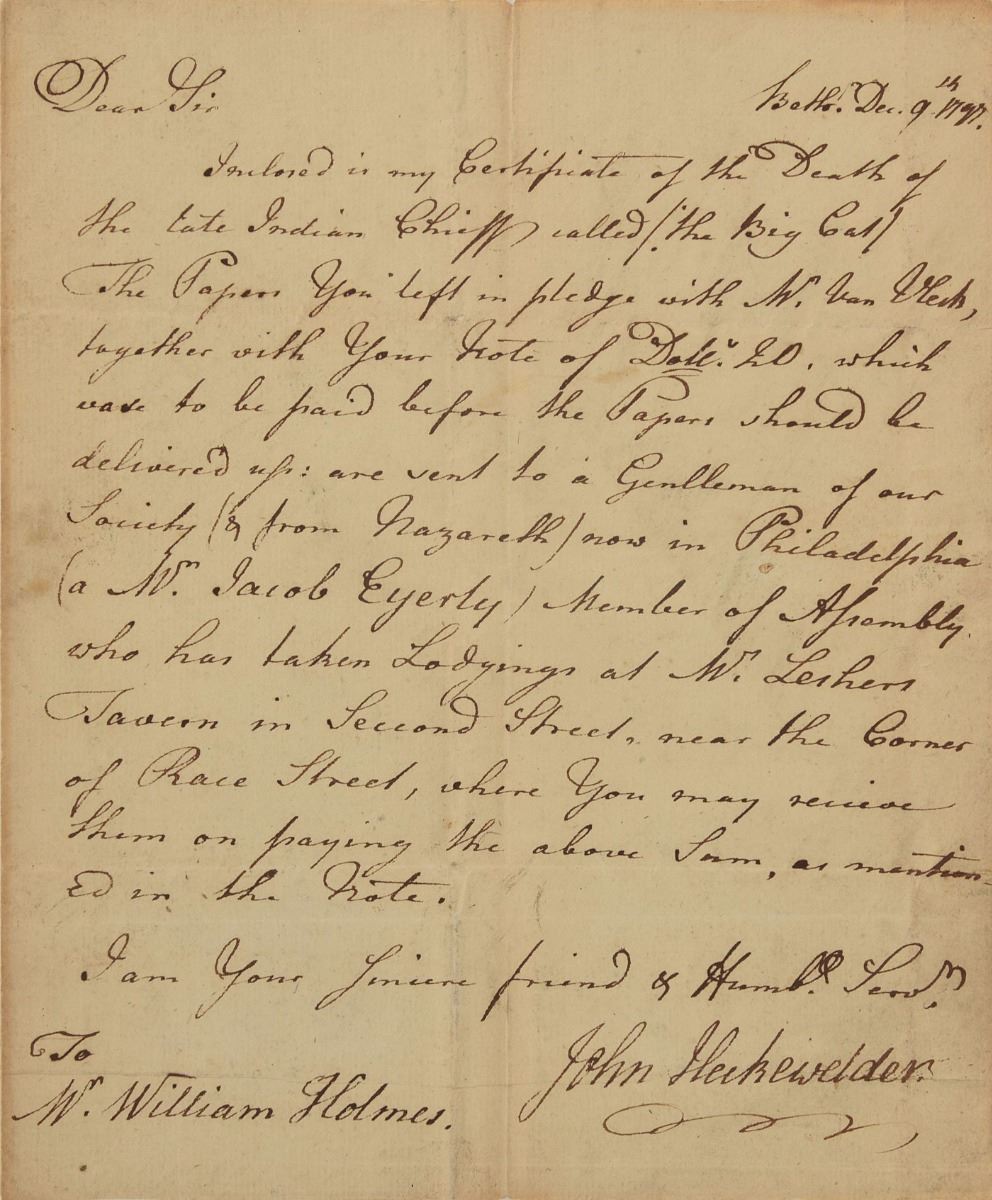 Dear Sir Beth.ᵐ Dec. 9th 1797.
Inclosed is my Certificate of the Death of
the late Indian Chieff called /: the Big Cat/
The Papers You left in pledge with Mr. Van Vleck,
together with Your Note of Dollrs. 20. which
was to be paid before the Papers should be
deliver'd up: are sent to a Gentleman of our
Society (& from Nazareth) now in Philadelphia
(a Mr. Jacob Eyerly) Member of Assembly.
who has taken Lodgings at Mr. Leshers
Tavern in Second Street, near the Corner
of Race Street, where You may recieve
them on paying the above Sum, as mention-
ed in the Note.
I am Your sincere friend & Humble. Servt.
John Heckewelder.
To
Mr. William Holmes.